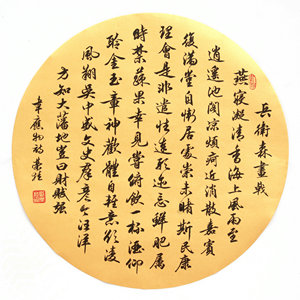 兵衛森畫戟
燕寢凝清香海上風雨至
逍遥池閣凉煩痾近消散嘉賓
復滿堂自慚居處崇未睹斯民康
理會是非遣性達形迹忘鮮肥屬
時禁蔬果幸見嘗俯飲一杯酒仰
聆金玉章神歡體自輕意欲凌
風翔吳中盛文史群彦今汪洋
方知大藩地豈曰財賦强
韋應物詩